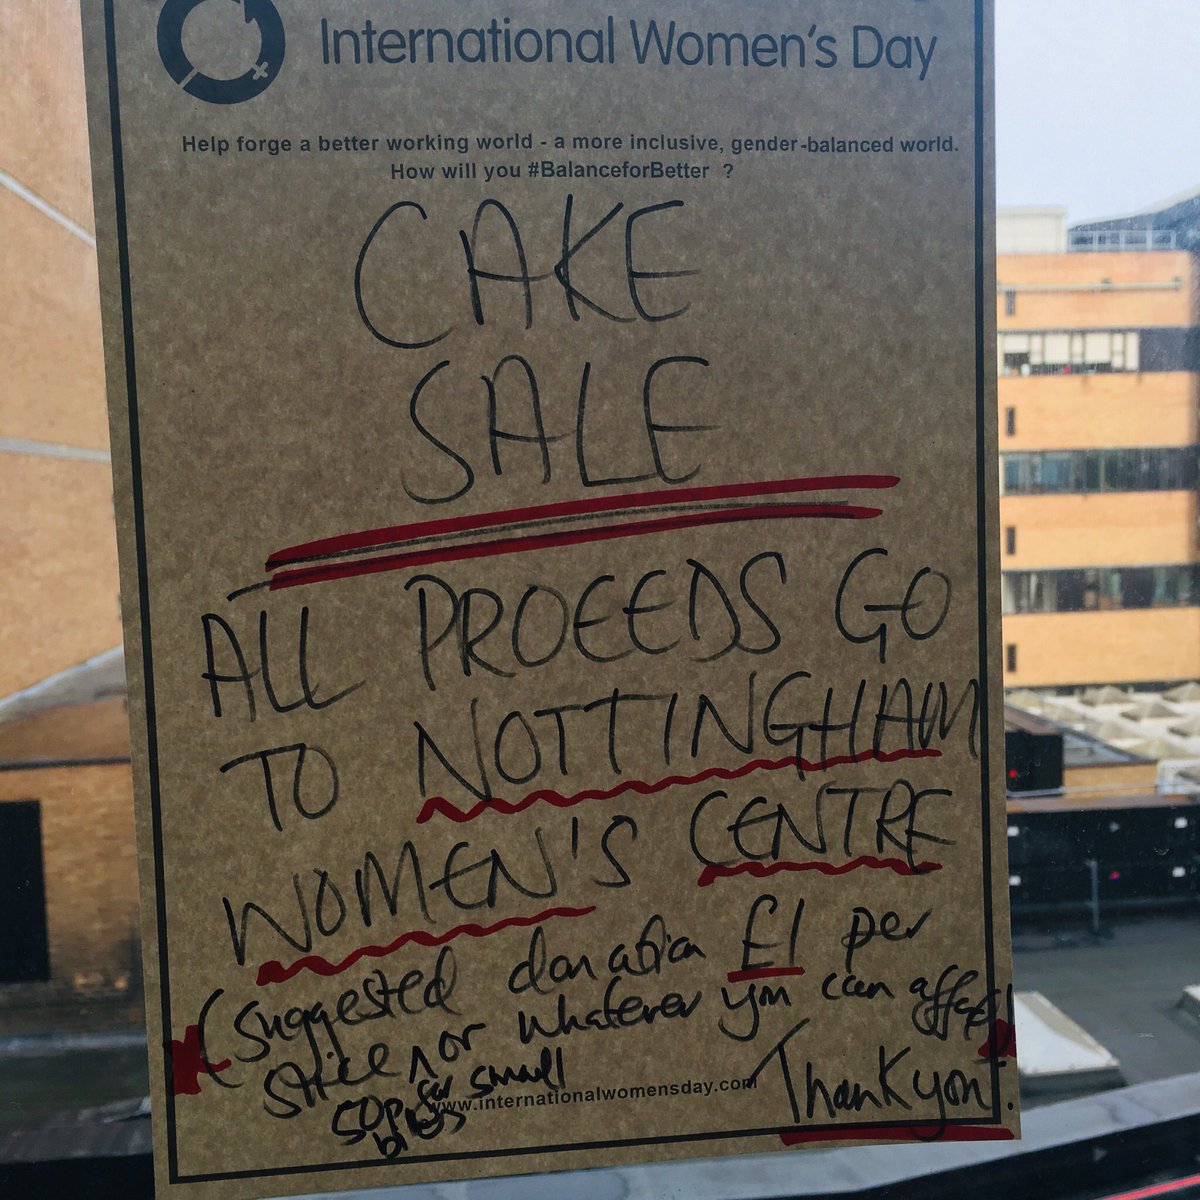 International Women's Day
Help forge a better working world - a more inclusive, gender-balanced world.
How will you #BalanceforBetter ?
CAKE
SALE
ALL PROCEEDS GO
TO NOTTINGHAM
WOMEN'S CENTRE
(Suggested donation £1 per
slice, or whatever you can afford)
50p for small
bits
www.internationalwomensday.com
Thank you!